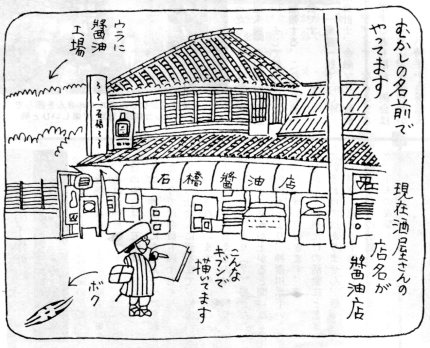 むかしの名前で
やってます
現在酒屋さんの
店名が
醬油店
ウラに
醬油
工場
石橋醬油店
こんな
キブンで
描いてます
ボク